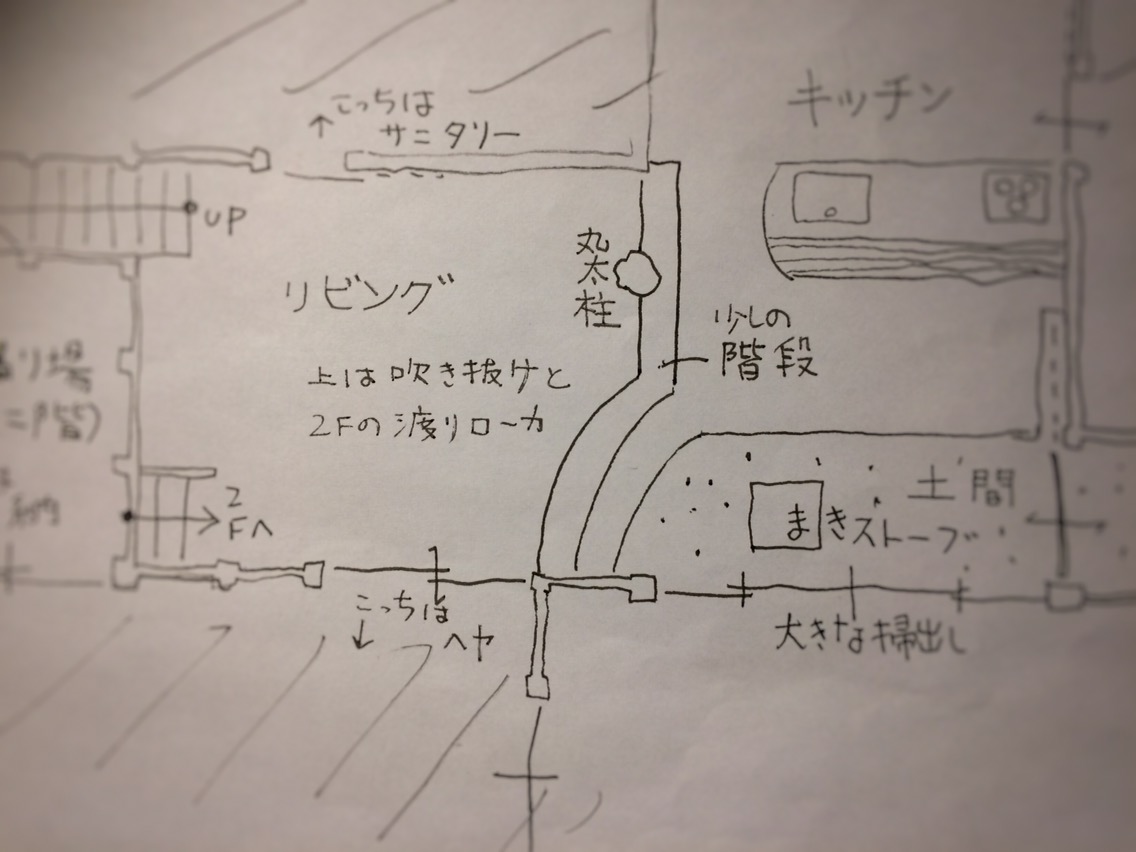 こっちは
サニタリー
キッチン
UP
丸太柱
リビング
少しの
階段
上は吹き抜けと
2Fの渡りローカ
り場
二階)
納
2
Fへ
土間
まきストーブ
こっちは
ヘヤ
大きな掃出し